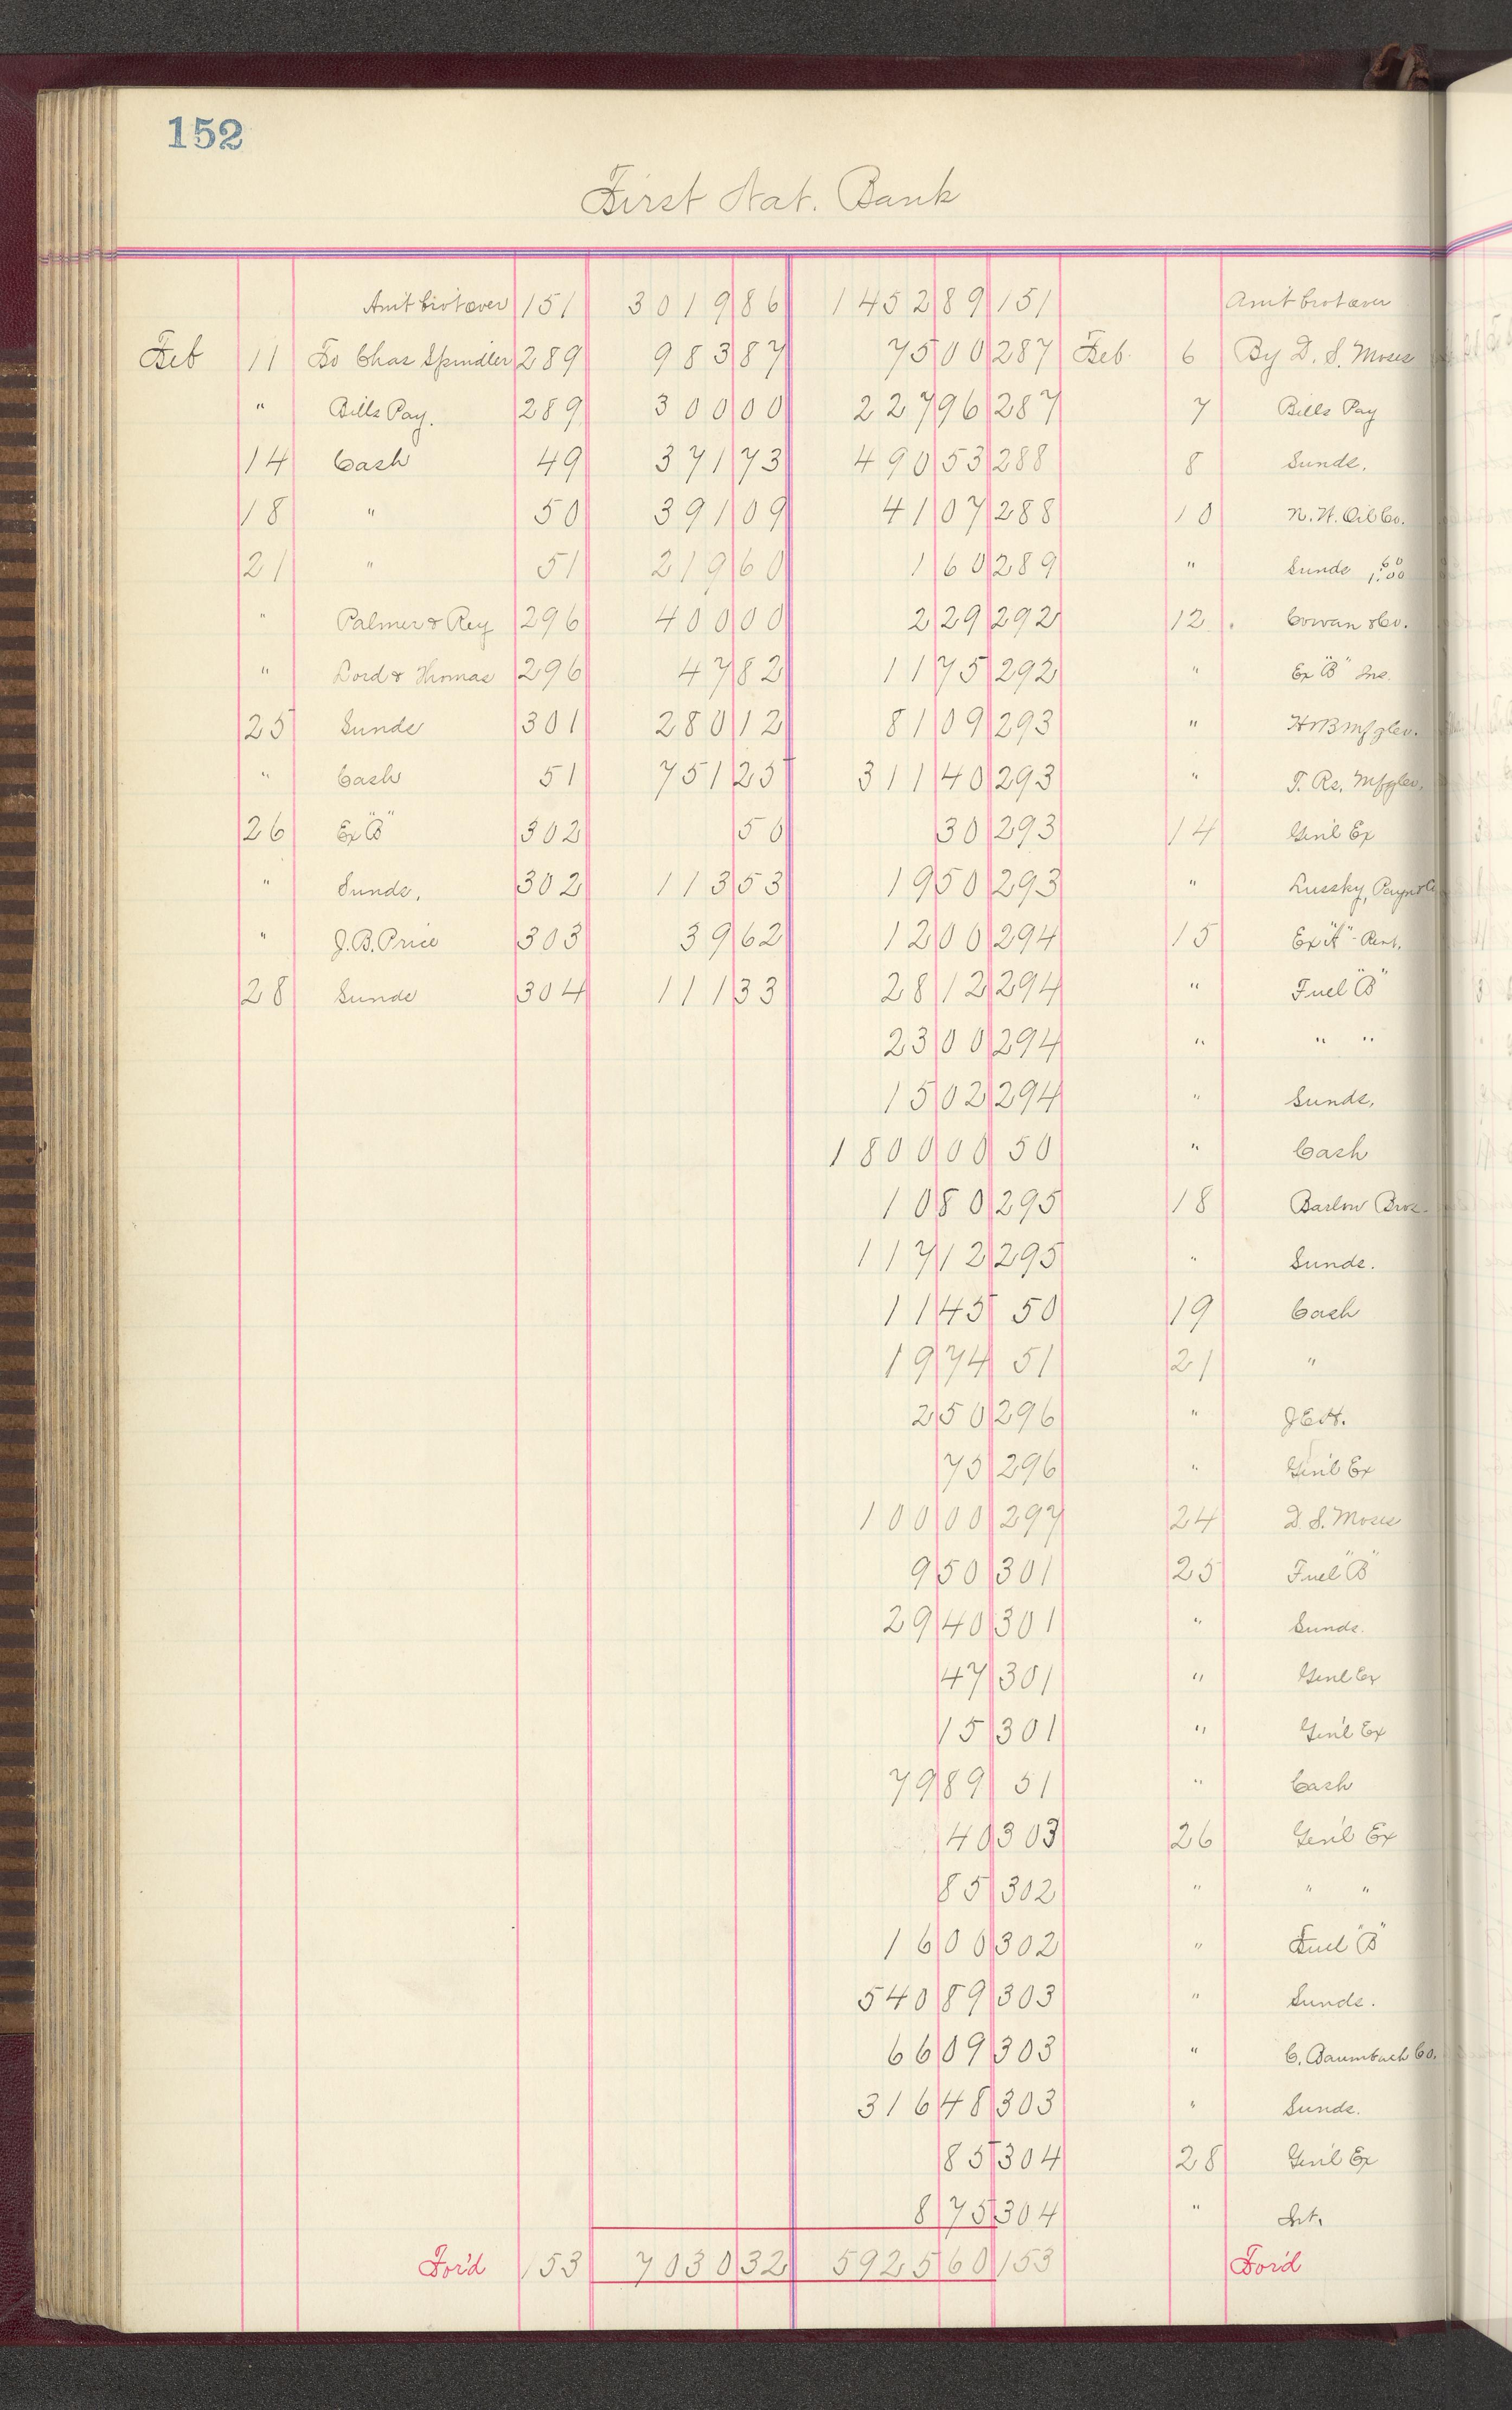 152
First Nat. Bank
Am't bro't over 151 3019 86 1452 89 151 Am't bro't over
Feb 11 To Chas Spindler 289 983 87 75 00 287 Feb. 6 By D. S. Moses
" Bills Pay. 289 300 00 227 96 287 7 Bills Pay
14 Cash 49 371 73 490 53 288 8 Sunds.
18 " 50 391 09 41 07 288 10 N. W. Oil Co.
21 " 51 219 60 1 60 289 " Sunds 60 1.00
" Palmer & Rey 296 400 00 2 29 292 12 Cowan & Co.
" Lord & Thomas 296 47 82 11 75 292 " Ex "B" Ins.
25 Sunds 301 280 12 81 09 293 " H W B Mfg Co.
" Cash 51 751 25 311 40 293 " T. Rs. Mfg Co.
26 Ex "B" 302 50 30 293 14 Gen'l Ex
" Sunds. 302 113 53 19 50 293 " Lussky, Payn & Co
" J. B. Price 303 39 62 12 00 294 15 Ex "A" - Rent.
28 Sunds 304 111 33 28 12 294 " Fuel "B"
23 00 294 " " "
15 02 294 " Sunds.
1800 00 50 " Cash
10 80 295 18 Barlow Bros.
117 12 295 " Sunds.
11 45 50 19 Cash
19 74 51 21 "
2 50 296 " J E H.
75 296 " Gen'l Ex
100 00 297 24 D. S. Moses
9 50 301 25 Fuel "B"
29 40 301 " Sunds.
47 301 " Genl Ex
15 301 " Gen'l Ex
79 89 51 " Cash
40 303 26 Gen'l Ex
85 302 " " "
16 00 302 " Fuel "B"
540 89 303 " Sunds.
66 09 303 " C. Baumbach Co.
316 48 303 " Sunds.
85 304 28 Gen'l Ex
8 75 304 " Int.
For'd 153 7030 32 5925 60 153 For'd